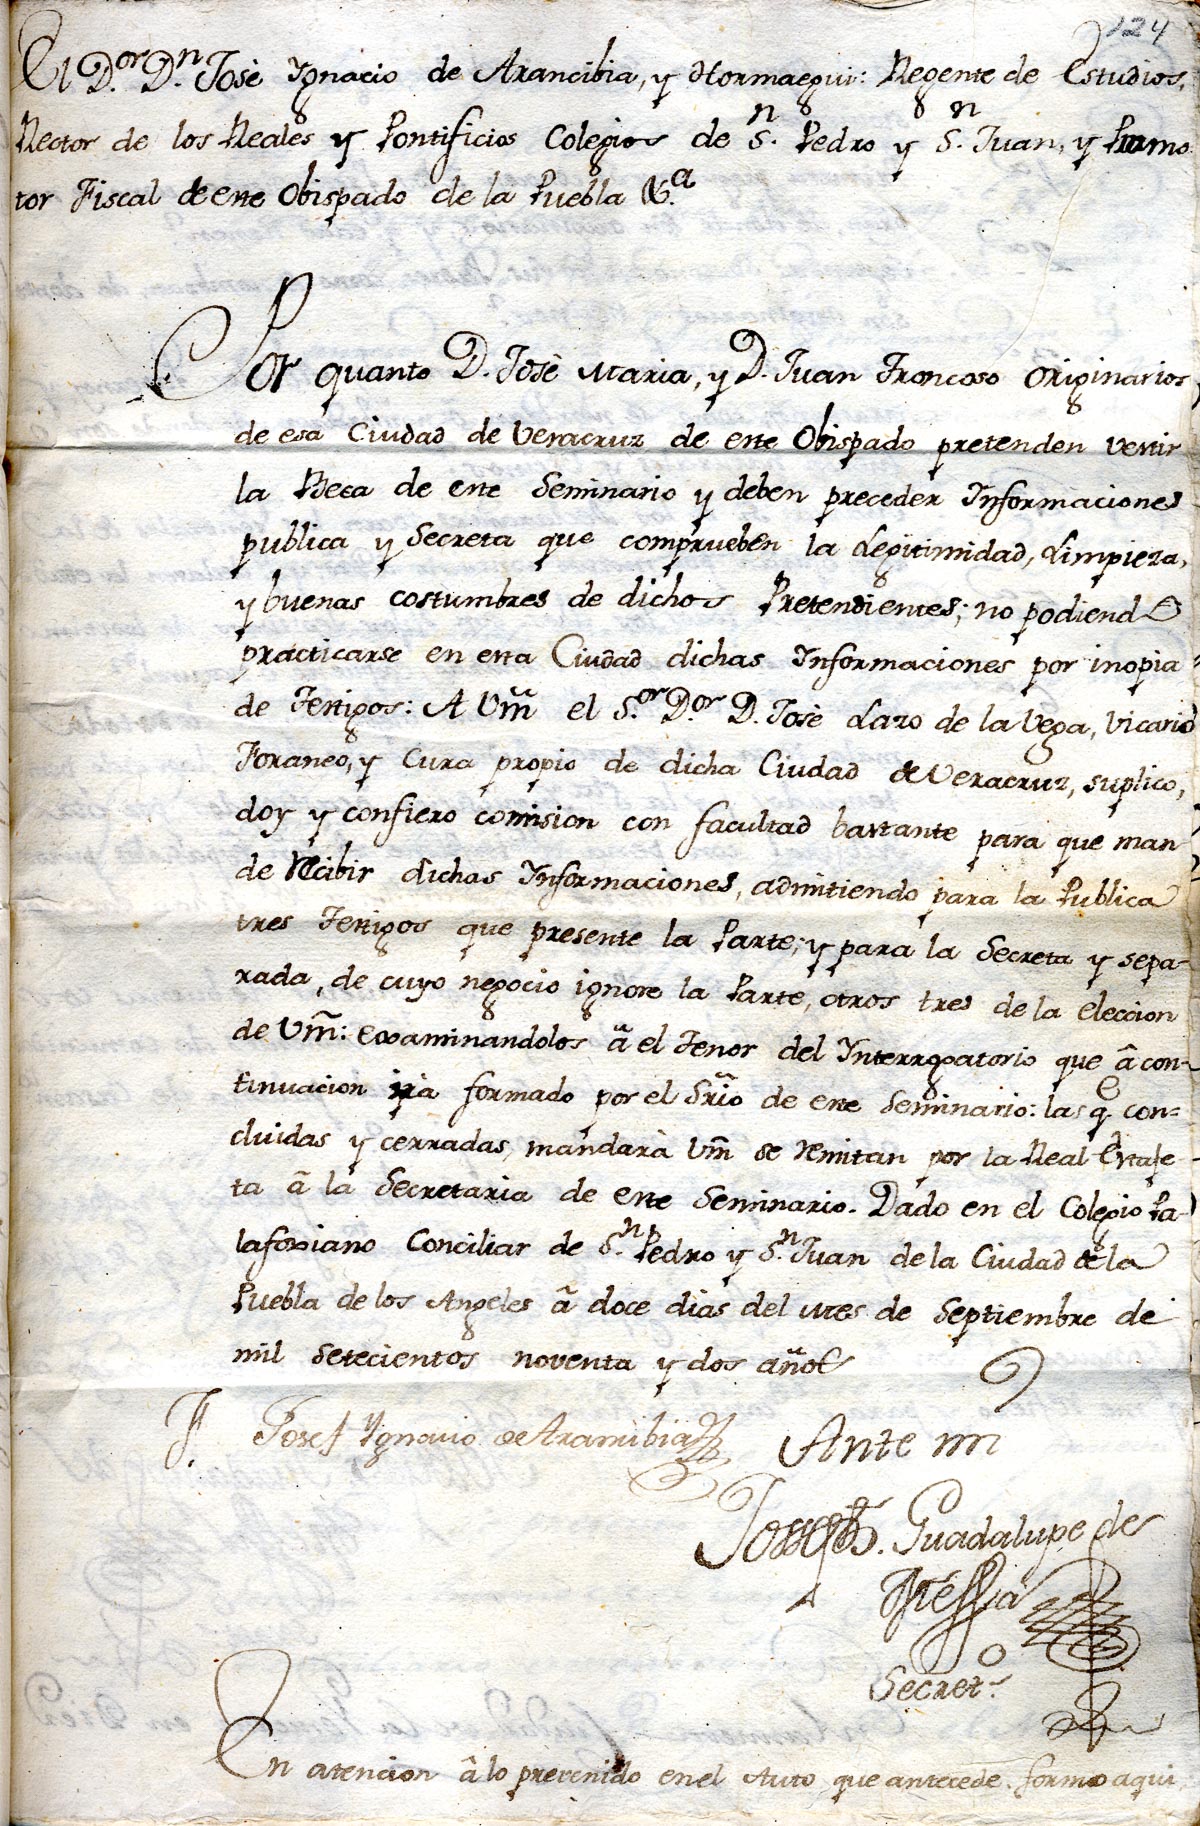 124
El D.or D.n Josè Ygnacio de Arancibia, y Hormaegui: Regente de Estudios,
Rector de los Reales y Pontificios Colegios de S.n Pedro y S.n Juan, y Promo
tor Fiscal de este Obispado de la Puebla &.a
Por quanto D. Josè Maria, y D. Juan Troncoso originarios
de esa Ciudad de Veracruz de este Obispado pretenden vestir
la Beca de este Seminario y deben preceder Informaciones
publica y Secreta que comprueben la Legitimidad, Limpieza,
y buenas costumbres de dichos Pretendientes; no podiendo
practicarse en esta Ciudad dichas Informaciones por inopia
de Testigos: A Vm̃ el S.or D.or D. Josè Lazo de la Vega, Vicario
Foraneo, y Cura propio de dicha Ciudad de Veracruz, suplico,
doy y confiero comision con facultad bastante para que man
de recibir dichas Informaciones, admitiendo para la Publica
tres Testigos que presente la Parte; y para la Secreta y sepa-
rada, de cuyo negocio ignore la Parte, otros tres de la eleccion
de Vm̃: examinandolos â el Tenor del Ynterrogatorio que â con-
tinuacion irà formado por el Srio de este Seminario: las q.e con=
cluidas y cerradas, mandarà Vm̃ se remitan por la Real Estafe-
ta â la Secretaria de este Seminario. Dado en el Colegio Pa-
lafoxiano Conciliar de S.n Pedro y S.n Juan de la Ciudad de la
Puebla de los Angeles â doce dias del Mes de Septiembre de
mil setecientos noventa y dos años
Josef Ygnacio de Arancibia
Ante mi
Joseph. Guadalupe de
Secret.o
En atencion â lo prevenido en el Auto que antecede. formo aqui